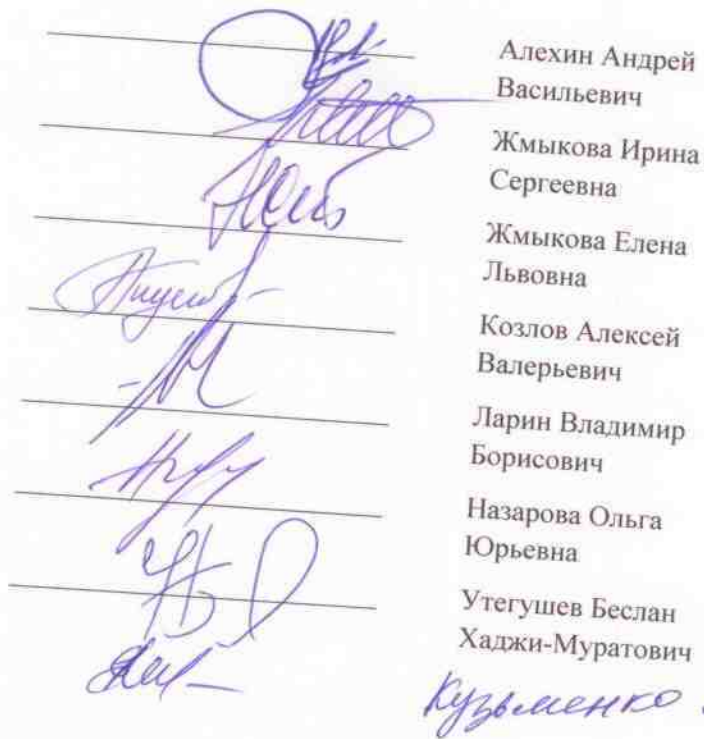 Алехин Андрей
Васильевич
Жмыкова Ирина
Сергеевна
Жмыкова Елена
Львовна
Козлов Алексей
Валерьевич
Ларин Владимир
Борисович
Назарова Ольга
Юрьевна
Утегушев Беслан
Хаджи-Муратович
Кузьменко